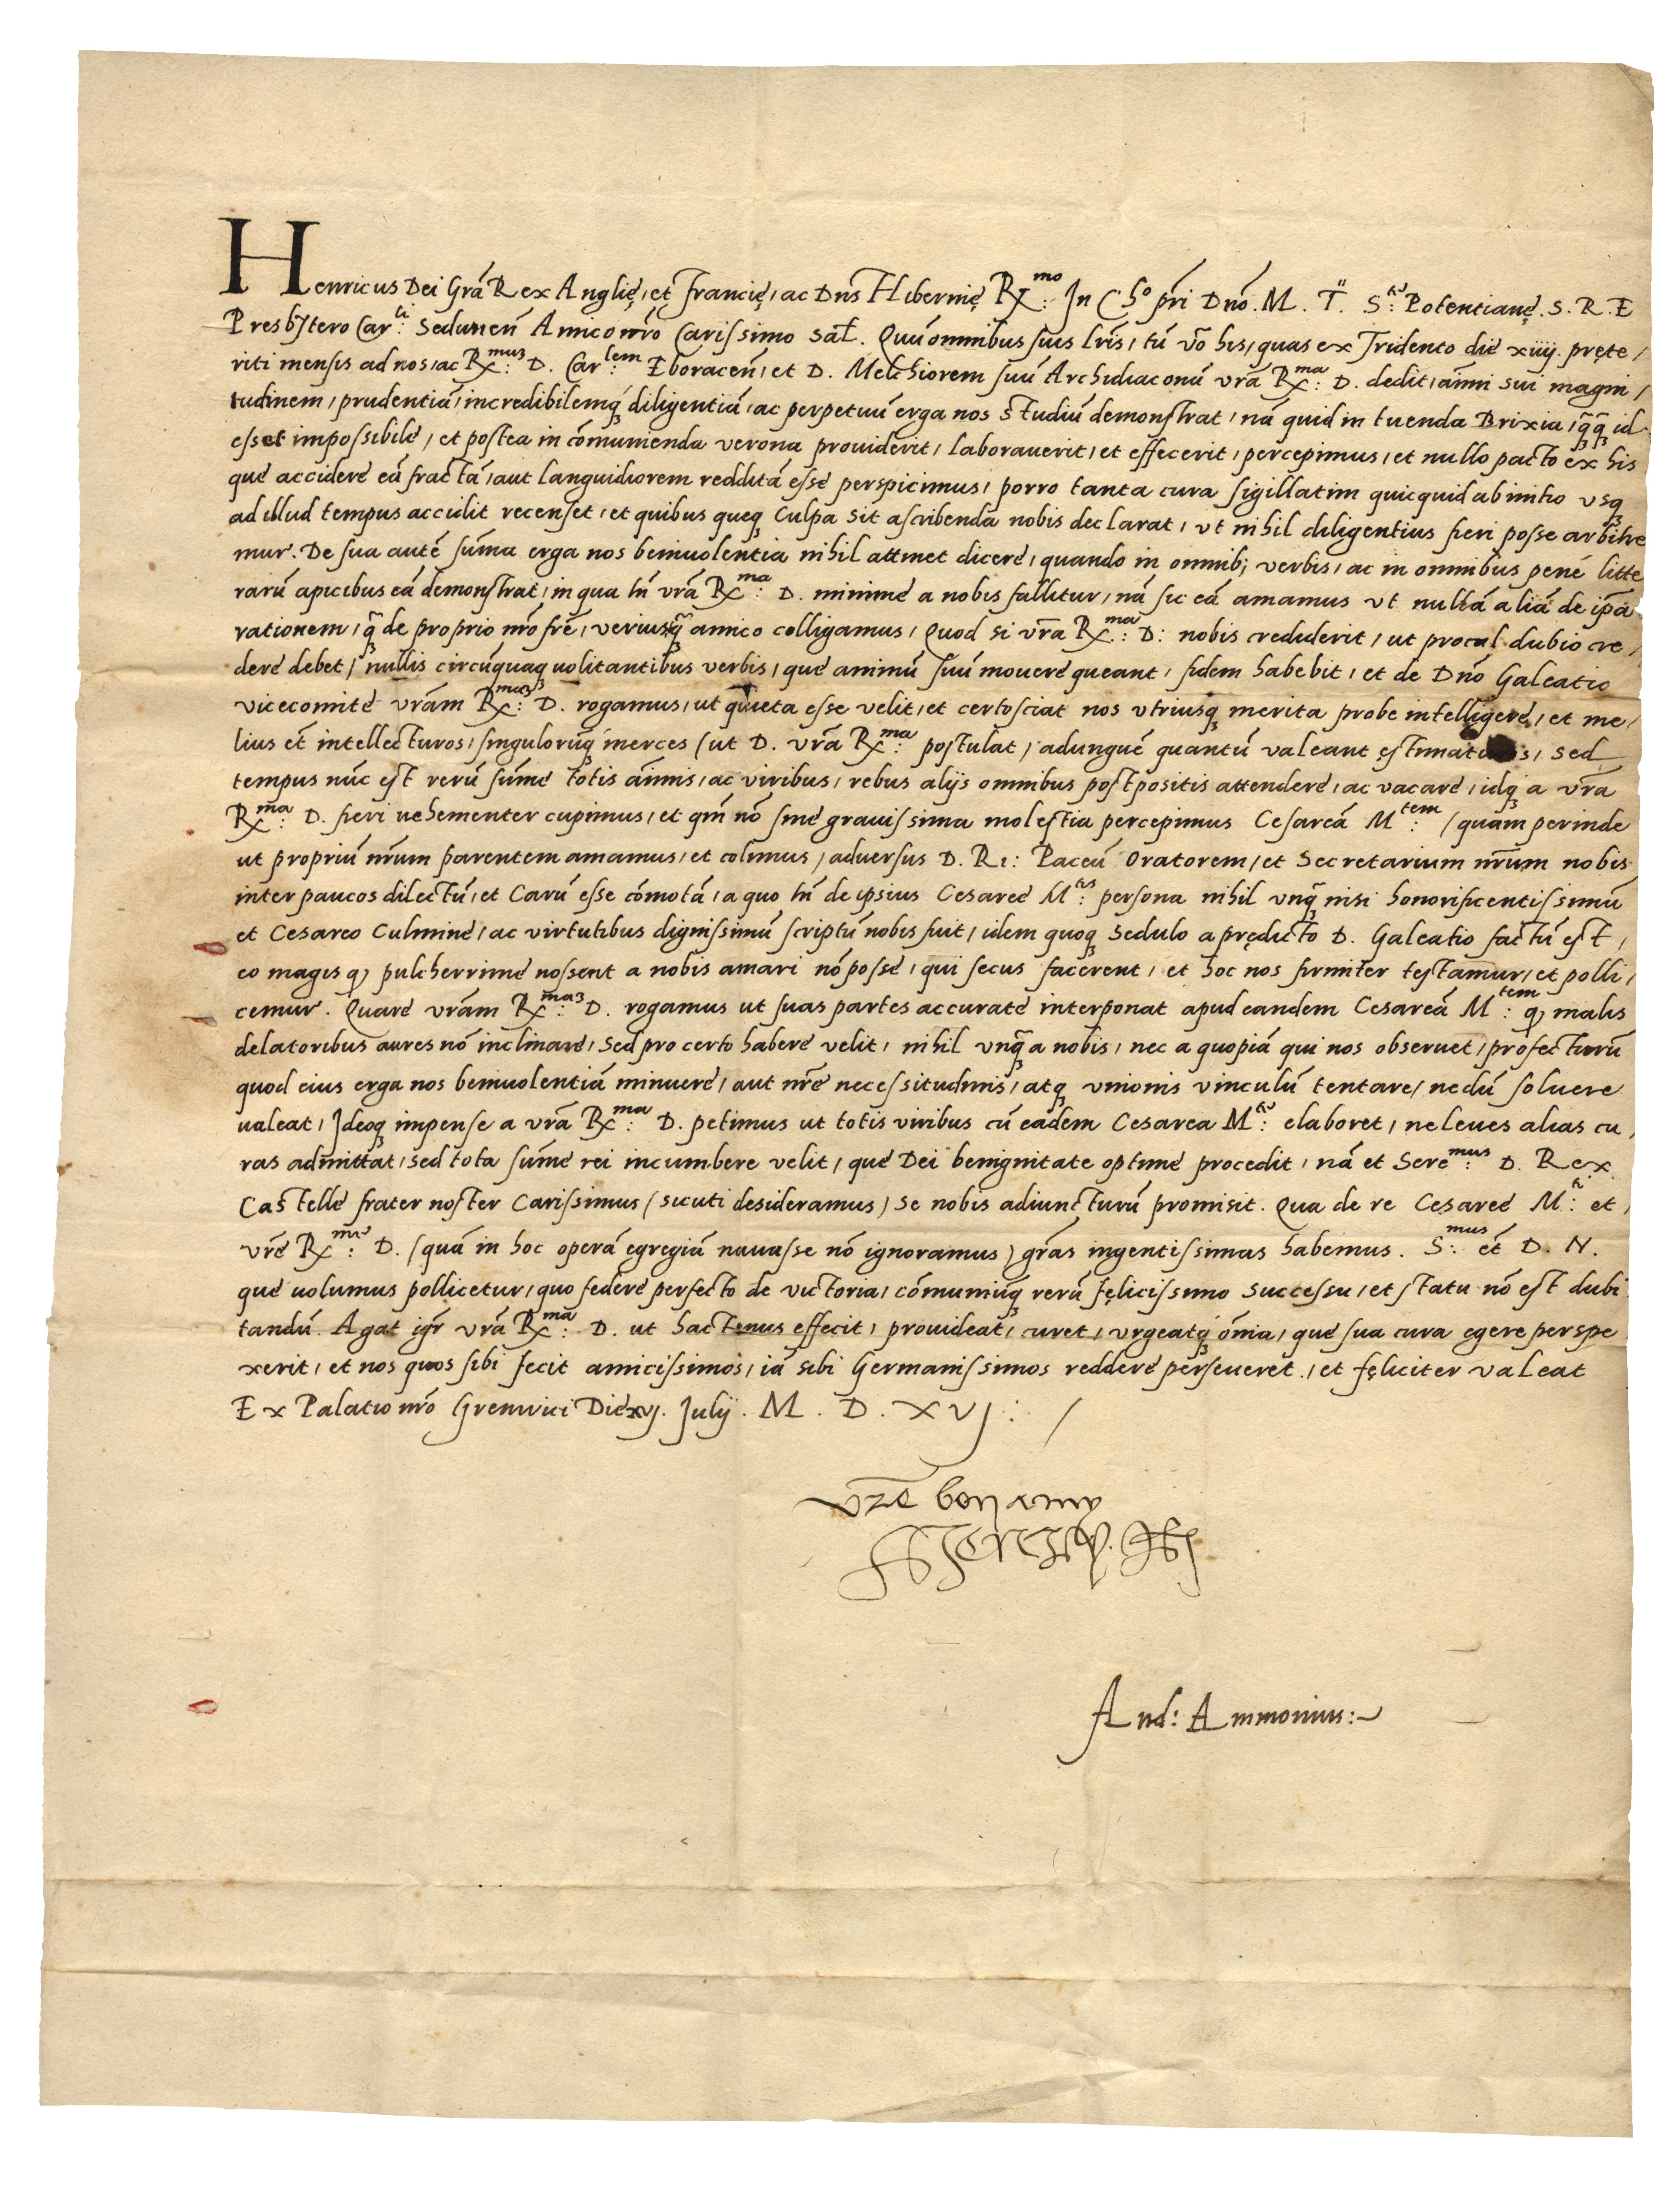 Henricus Dei Grã Rex Anglię, et francię, ac Dns Hibernię Rx:mo In Cho pri Dno. M. T. S: Potentianę. S. R. E
Presbjtero Car:li Sedunen̄ Amico nr̄o Carissimo sal̄. Quũ omnibus suis lr̄is, tũ vo his, quas ex Tridento die xiiij. pręte,
riti mensis ad nos, ac Rx:mus D. Car:lem Eboracen̄, et D. Melchiorem suũ Archidiaconũ vrã Rx:ma D. dedit, ãnni sui magni,
tudinem, prudentiã, incredibilemqꝫ diligentiã, ac perpetuũ erga nos studiũ demonstrat, nã quid in tuenda Brixia, qꝫqꝫ id
esset impossibile, et postea in cõmunienda verona prouiderit, laborauerit, et effecerit, percepimus, et nullo pacto ex his
que accidere eã fractã, aut languidiorem redditã esse perspicimus, porro tanta cura sigillatim quicquid ab initio vsqꝫ
ad illud tempus accidit recenset, et quibus queqꝫ Culpa sit ascribenda nobis declarat, vt nihil diligentius fieri posse arbitre
mur. De sua autẽ sũma erga nos beniuolentia nihil attinet dicere, quando in omnib; verbis, ac in omnibus pene litte
rarũ apicibus eã demonstrat, in qua tñ vrã Rx:ma D. minime a nobis fallitur, nã sic eã amamus vt nullã aliã de ipã
rationem, qꝫ de proprio nrõ frẽ, verius qꝫ amico colligamus, Quod si vrã Rx:ma D: nobis crediderit, ut procul dubio cre,
dere debet, nullis circũquaqꝫ uolitantibus verbis, que animũ suũ mouere queant, fidem habebit, et de Dnõ Galeatio
vicecomite vrãm Rx:maꝫ D. rogamus, ut quieta esse velit, et certo sciat nos vtriusqꝫ merita probe intelligere, et me,
lius et̃ intellecturos, singulorũqꝫ merces (ut D. vrã Rx:ma postulat) adungue quantũ valeant ęstimaturos, sed
tempus nũc est rerũ sũme totis ãnnis, ac viribus, rebus alijs omnibus postpositis attendere, ac vacare, idqꝫ a vrã
Rx:ma D. fieri uehementer cupimus, et qm̃ nõ sine grauissima molestia percepimus Cesareã M:tem (quam perinde
ut propriũ nr̃um parentem amamus, et colimus) aduersus D. Ri: Paceũ Oratorem, et Secretarium nr̃um nobis
inter paucos dilectũ, et Carũ esse cõmotã, a quo tñ de ipsius Cesaree M:tis persona nihil vnqꝫ nisi honorificentissimũ
et Cesareo Culmine, ac virtutibus dignissimũ scriptũ nobis fuit, idem quoqꝫ sedulo a prędicto D. Galeatio factũ est,
eo magis qꝫ pulcherrime nossent a nobis amari nõ posse, qui secus facerent, et hoc nos firmiter testamur, et polli,
cemur. Quare vrãm Rx:maꝫ D. rogamus ut suas partes accurate interponat apud eandem Cesareã M:tem qꝫ malis
delatoribus aures nõ inclinare, sed pro certo habere velit, nihil vnqꝫ a nobis, nec a quopiã qui nos obseruet, profecturũ
quod eius erga nos beniuolentiã minuere, aut nrẽ necessitudinis, atqꝫ vnionis vinculũ tentare, nedũ soluere
ualeat, Ideoqꝫ impense a vrã Rx:ma D. petimus ut totis viribus cũ eadem Cesarea M:te elaboret, ne leues alias cu,
ras admittat, sed tota sũme rei incumbere velit, que Dei benignitate optime procedit, nã et Sere:mus D. Rex
Castelle frater noster Carissimus (sicuti desideramus) se nobis adiuncturũ promisit. Qua de re Cesaree M:ti et,
vrẽ Rx:me D. (quã in hoc operã egregiã nauasse nõ ignoramus) grãs ingentissimas habemus. S:mus et̃ D. N.
que uolumus pollicetur, quo federe perfecto de victoria, cõmuniũqꝫ rerũ fęlicissimo Successu, et statu nõ est dubi
tandũ. Agat igr̃ vrã Rx:ma D. ut hactenus effecit, prouideat, curet, vrgeatqꝫ õmnia, que sua cura egere perspe
xerit, et nos quos sibi fecit amicissimos, iã sibi Germanissimos reddere perseueret., et fęliciter valeat
Ex Palatio nrõ Grenwici Die xvj. Julij. M. D. XVJ: /
And: Ammonius: